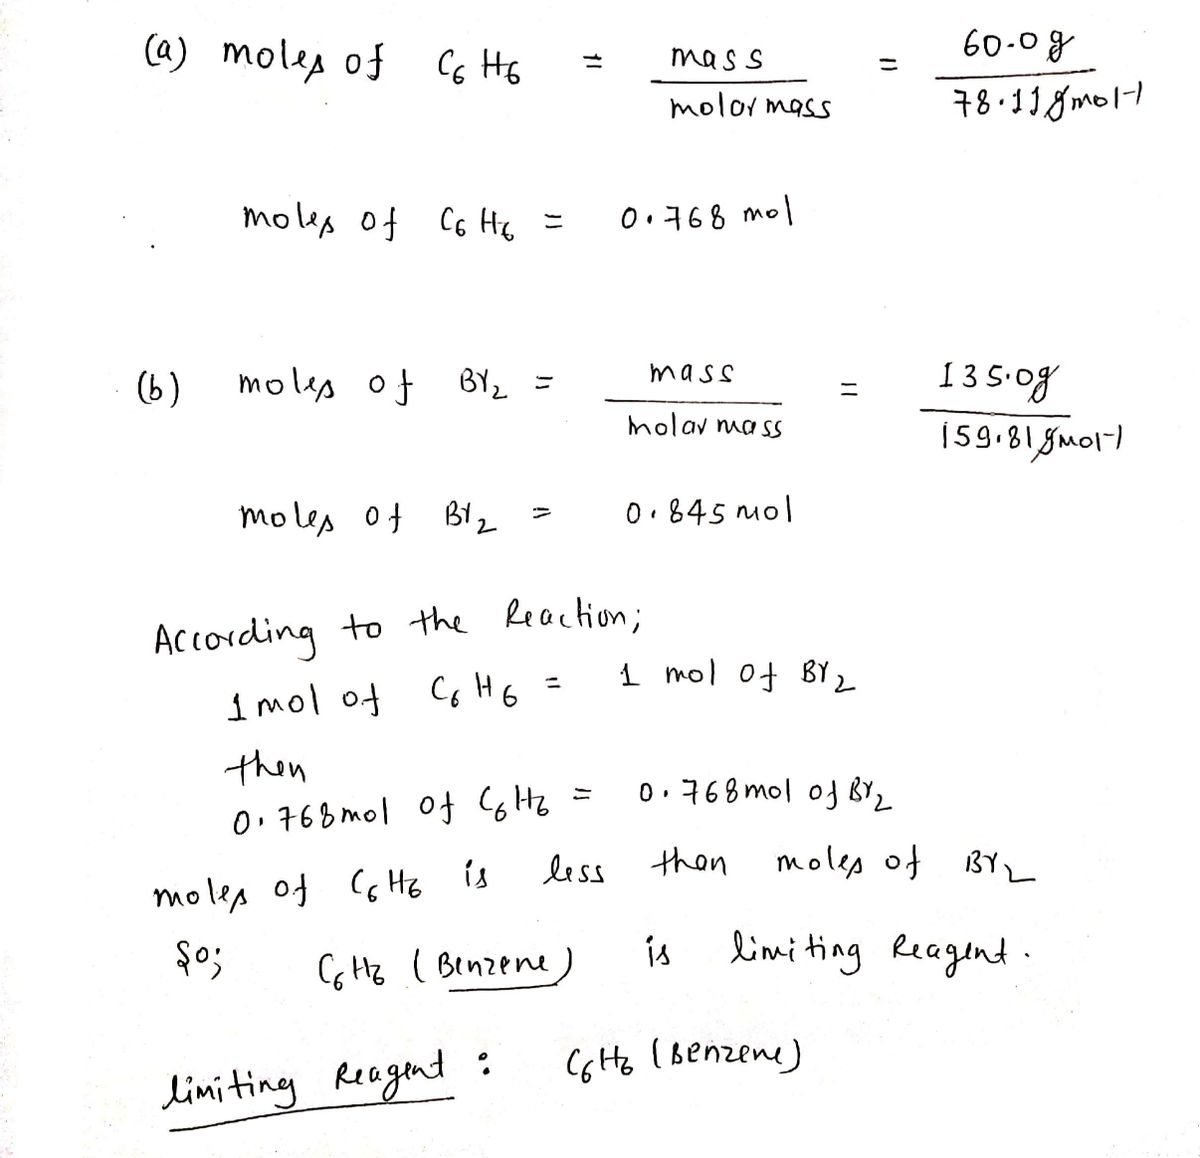 (a) moles of C6 H6 = mass / molar mass = 60.0 g / 78.11 g mol-1
moles of C6 H6 = 0.768 mol
(b) moles of Br2 = mass / molar mass = 135.0g / 159.81 g mol-1
moles of Br2 = 0.845 mol
According to the Reaction;
1 mol of C6 H6 = 1 mol of Br2
then
0.768 mol of C6 H6 = 0.768 mol of Br2
moles of C6 H6 is less than moles of Br2
So; C6 H6 (Benzene) is limiting Reagent.
limiting Reagent : C6 H6 (Benzene)